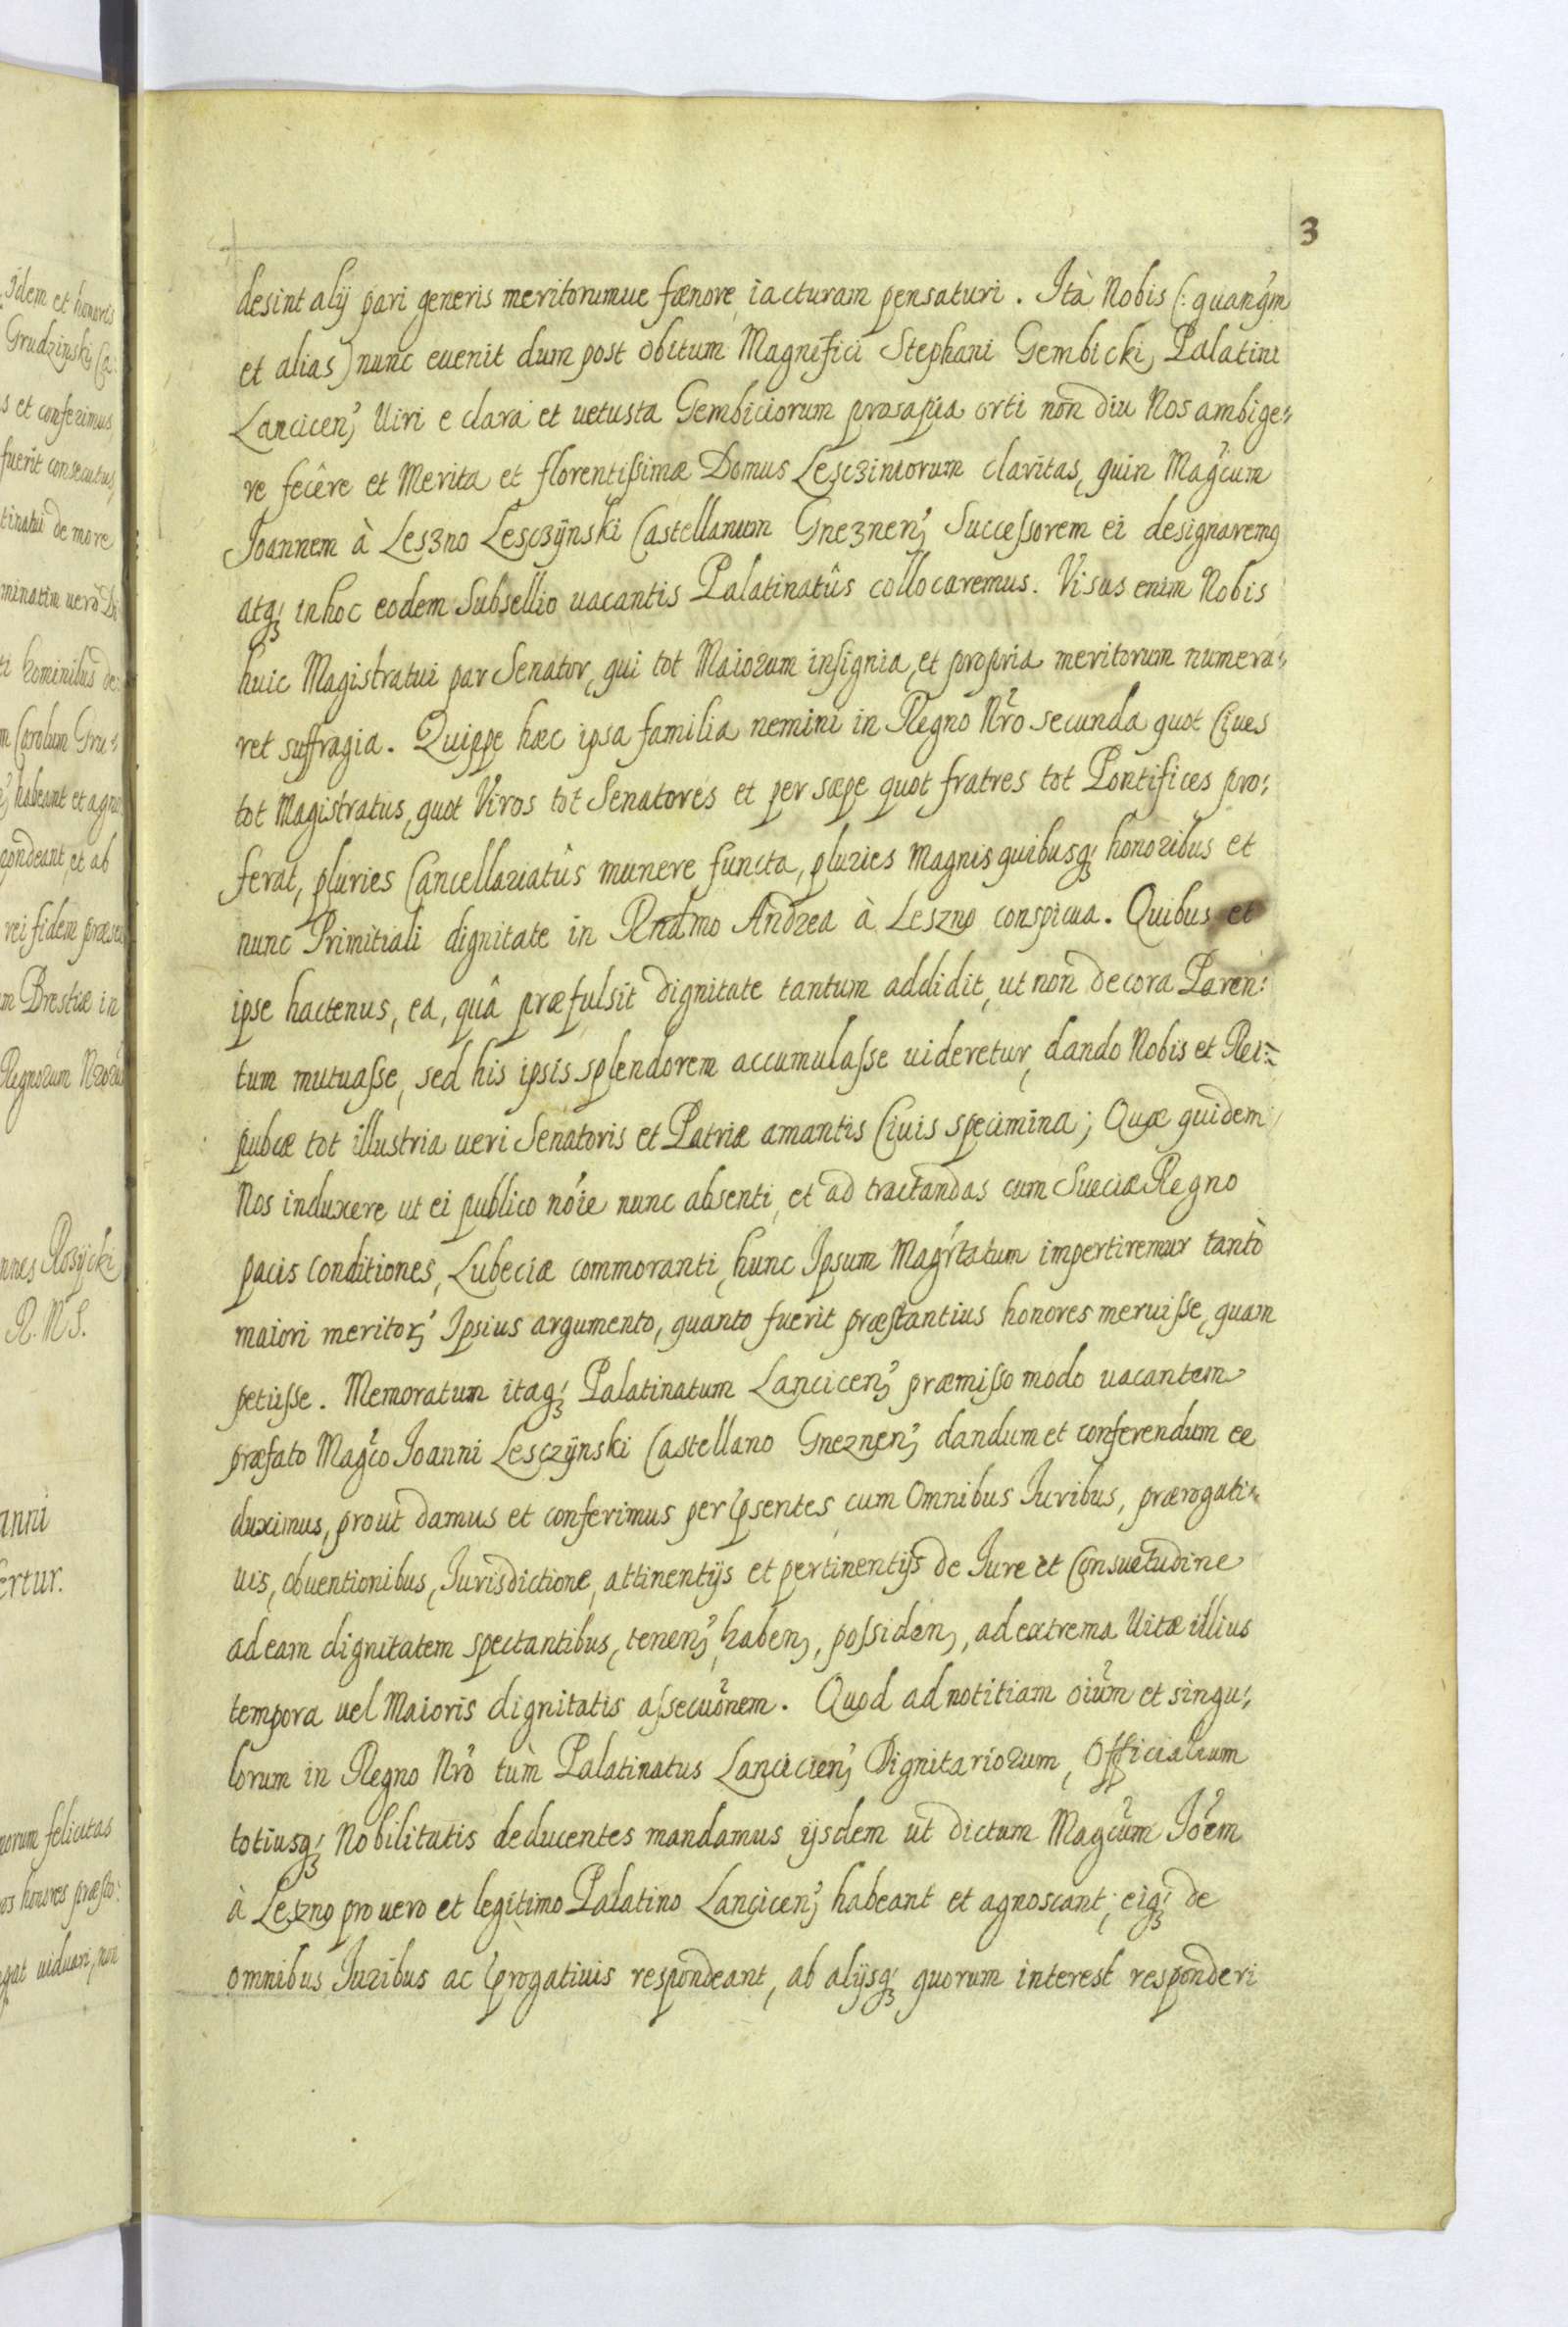 3
desint alij pari generis meritorumue fœnore iacturam pensaturi. Ità Nobis (: quanqm̃
et alias) nunc euenit dum post obitum Magnifici Stephani Gembicki, Palatini
Lancicen̓ Uiri e clara et uetusta Gembiciorum prosapia orti non diu Nos ambige,,
re fecêre et Merita et florentissimæ Domus Lescziniorum claritas, quin Mag̃cum
Joannem à Leszno Lesczÿnski Castellanum Gneznen̓ Successorem ei designaremꝰ
atq; in hoc eodem Subsellio uacantis Palatinatûs collocaremus. Visus enim Nobis
huic Magistratui par Senator, qui tot Maiorum insignia, et propria meritorum numera,,
ret suffragia. Quippe hæc ipsa familia nemini in Regno Nr̃o secunda quot Ciues
tot Magistratus, quot Viros tot Senatores et per sæpe quot fratres tot Pontifices pro,,
ferat, pluries Cancellariatûs munere functa, pluries magnis quibusq; honoribus et
nunc Primitiali dignitate in Rndmo Andrea à Leszno conspicua. Quibus et
ipse hactenus, ea, quâ præfulsit dignitate tantum addidit, ut non decora Paren:
tum mutuasse, sed his ipsis splendorem accumulasse uideretur, dando Nobis et Rei=
pubcæ tot illustria ueri Senatoris et Patriæ amantis Ciuis specimina; Quæ quidem
Nos induxere ut ei publico nõie nunc absenti, et ad tractandas cum Sueciæ Regno
pacis conditiones, Lubeciæ commoranti, hunc Ipsum Magr̃tatum impertiremur tantò
maiori meritoꝝ Ipsius argumento, quanto fuerit præstantius honores meruisse, quam
petiisse. Memoratum itaq; Palatinatum Lancicen̓ præmisso modo uacantem
præfato Mag̃co Joanni Lesczÿnski Castellano Gneznen̓ dandum et conferendum ee
duximus, prout damus et conferimus per p̃sentes, cum Omnibus Iuribus, prærogati,,
uis, obuentionibus, Jurisdictione, attinentijs et pertinentijs de Jure et Consuetudine
ad eam dignitatem spectantibus, tenen̓, haben̓, possiden̓, ad extrema Uitæ illius
tempora uel Maioris dignitatis assecuõnem. Quod ad notitiam oiũm et singu,,
lorum in Regno Nr̃o tùm Palatinatus Lancicien̓ Dignitariorum, Officialium
totiusq; Nobilitatis deducentes mandamus ijsdem ut dictum Magc̃um Jõem
à Leszno pro uero et legitimo Palatino Lancicen̓ habeant et agnoscant; eiq; de
omnibus Iuribus ac p̃rogatiuis respondeant, ab alijsq; quorum interest responderi